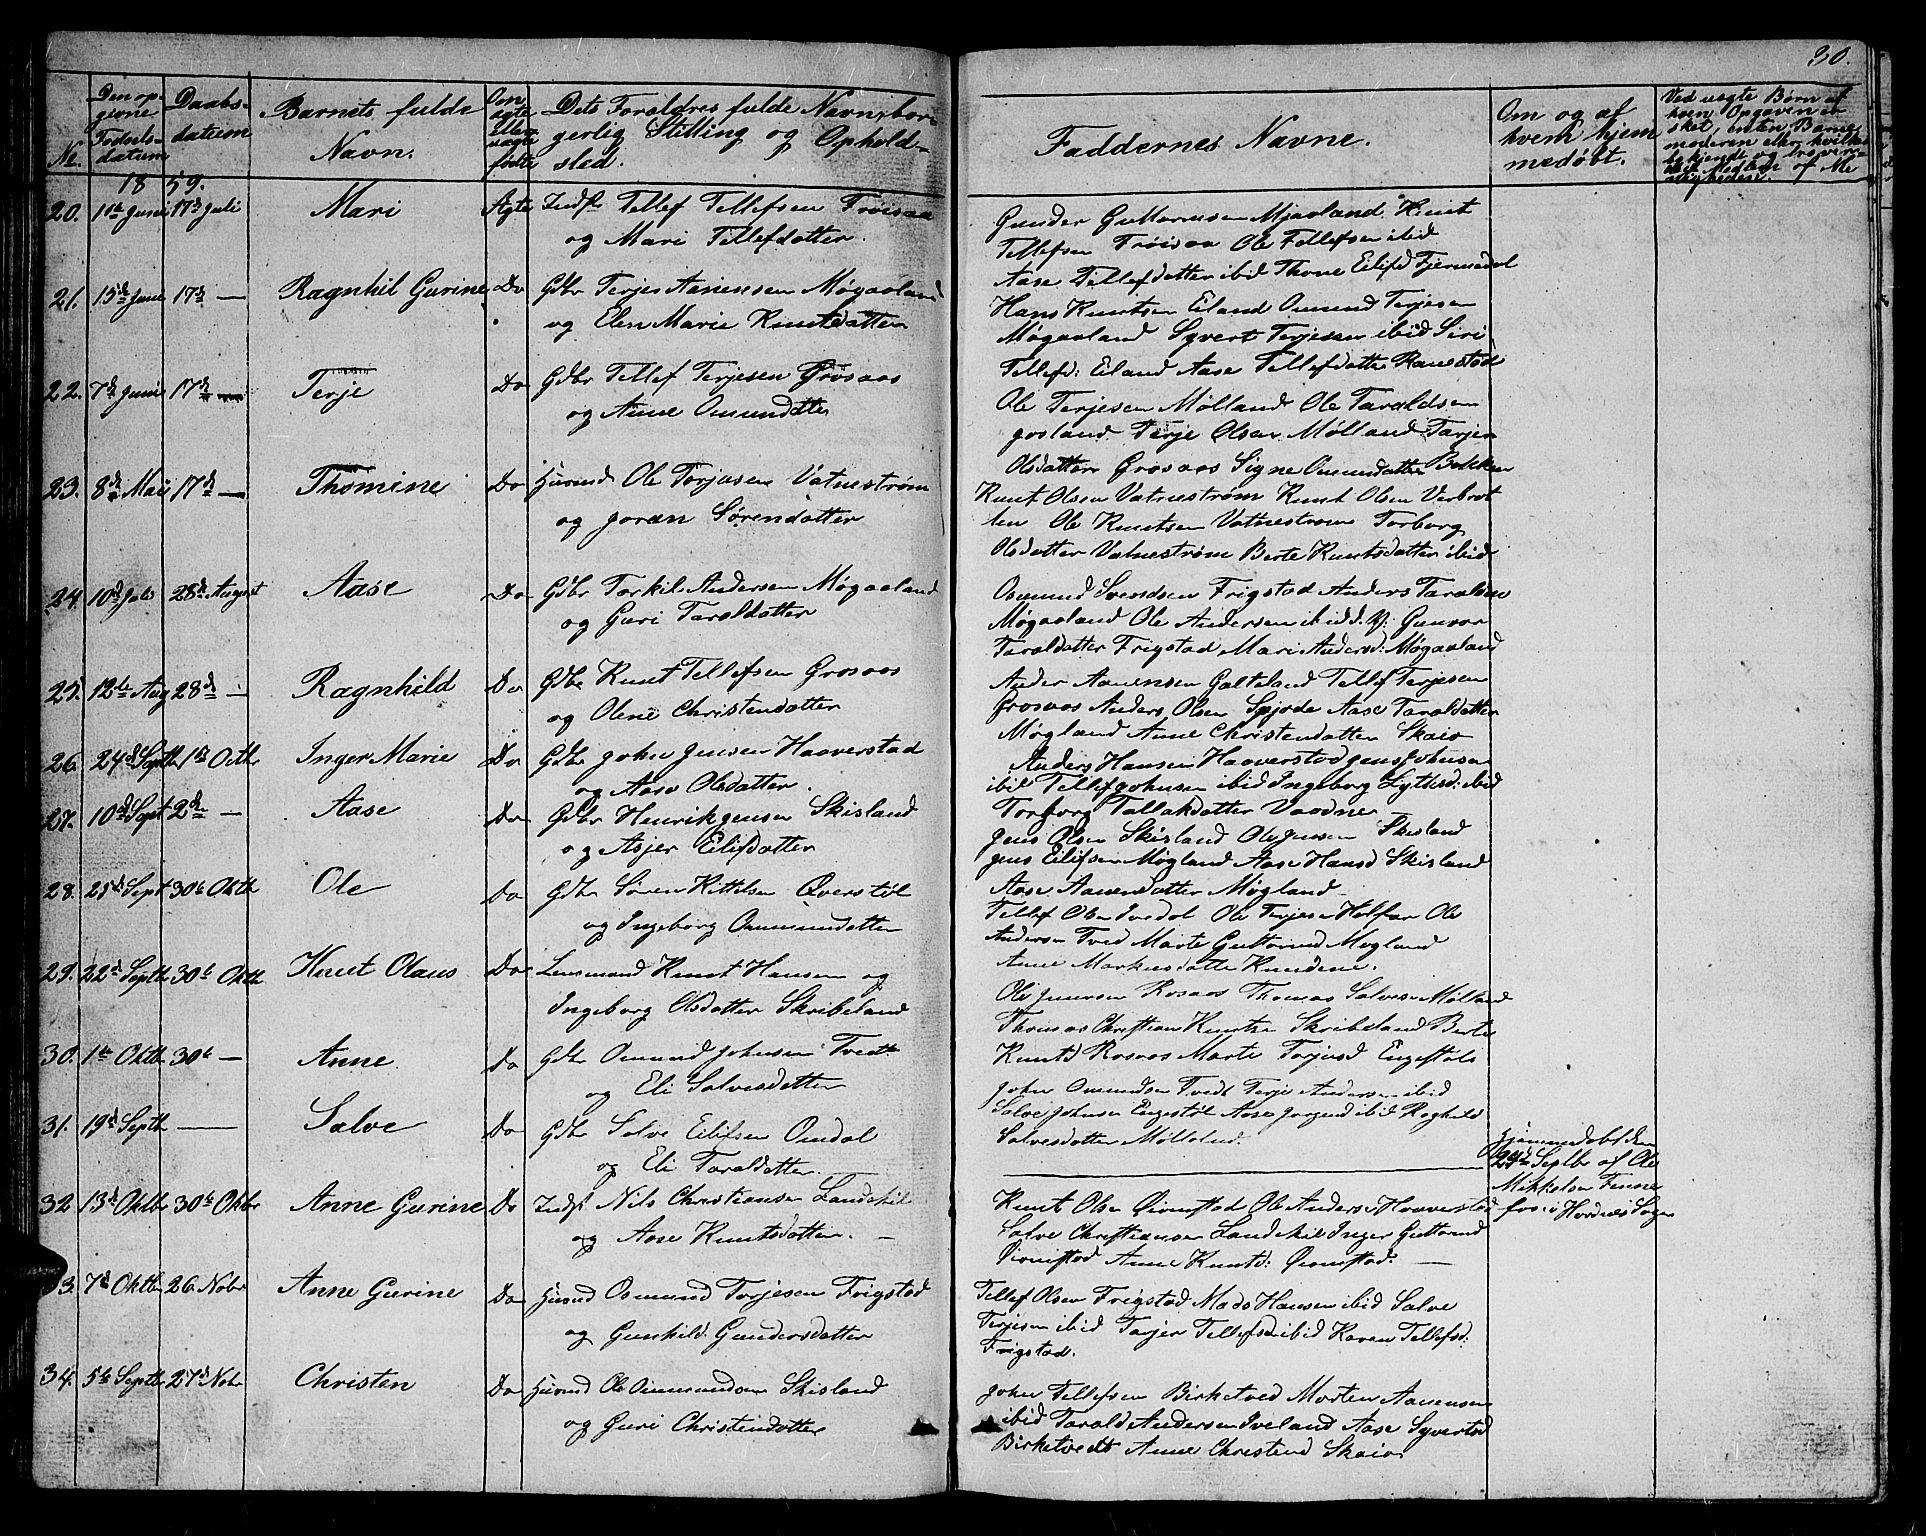 30.
No.
Den op-
givne
Fødsels-
datum
Daabs-
datum
Barnets fulde
Navn.
Om
ægte
eller
uægte
fødte
Dets Foraldres fulde Navn, bor-
gerlig Stilling og Ophold-
sled.
Faddernes Navne.
Om og af
hvem hjem
medøbt.
Ved uægte Børn af
hvem Opgaven er
sket, enten Barne
moderen eller
1859.
20. 11te Juni 17de Juli Mari Ægte Indst Tellef Tellefsen Frøisaa
og Mari Tellefdatter.
Gunder Guttormsen Mjaaland Knut
Tellefsen Frøisaa Ole Tellefsen ibid
Aase Tellefdatter ibid Thone Eilifd Fjermedal
21. 15de Juni 17de — Ragnhil Gurine Do Gdbr Terjes Aanensen Møgaaland
og Elen Marie Knutsdatter
Hans Knutsen Eiland Omund Terjesen
Møgaaland Syvert Terjesen ibid Siri
Tellefd: Eiland Aase Tellefdatter Ranestad
22. 7de Juni 17de — Terje Do Gdbr Tellef Terjesen Grosaas
og Anne Omundatter
Ole Terjesen Mølland Ole Taraldsen
Josland Terje Olsen Mølland Tarjer
Olsdatter Grosaas Signe Omundatter Bakken
23. 8de Mai 17de — Thomine Do Husmd Ole Torjusen Vatnestrøm
og Joran Sørendatter
Knut Olsen Vatnestrøm Knut Olsen Verbrot
ten Ole Knutsen Vatnestrøm Torborg
Olsdatter Vatnestrøm Berte Knutsdatter ibid
24. 10de Juli 28de August Aase Do Gdbr Torkil Andersen Møgaaland
og Guri Taraldatter
Osmund Svendsen Frigstad Anders Taraldsen
Møgaaland Ole Andersen ibid d. y. Gunvor
Taraldatter Frigstad Mari Andersd: Møgaaland
25. 12te Aug 28de — Ragnhild Do Gdbr Knut Tellefsen Grosaas
og Olene Christendatter
Ander Aanensen Galteland Tellef Terjesen
Grosaas Anders Olsen Spjode Aase Taraldatter
Møgland Anne Christendatter Skaio
26. 24de Septbr 1te Octbr Inger Marie Do Gdbr John Jensen Haaverstad
og Aase Olsdatter.
Anders Hansen Haaverstad Jens Johnsen
ibid Tellef Johnsen ibid Ingeborg ibid
Torborg Tallakdatter Vaadne
27. 10de Sept 2de — Aase Do Gdbr Henrik Jensen Skisland
og Asjer Eilifdatter
Jens Olsen Skisland Ole Jensen Skisland
Jens Eilifsen Møgland Aase Hansd Skisland
Aase Aanendatter Møgland
28. 25de Sept 30te Oktbr Ole Do Gdbr Søren Kittelsen Øverstøl
og Ingeborg Ommundatter
Tellef Olsen Ivedal Ole Terjesen Ole
Andersen Tved Marte Guttormd Mogland
Anne Markusdatter
29. 22de Septbr 30te Oktbr Knut Olaus Do Lensmand Knut Hansen og
Ingeborg Olsdatter Skribeland
Ole Rosaas Thomas Salvesen Mølland
Thomas Christian Knutsen Skribeland Berte
Knutd Rosaas Marte Torjusd Engestøls
30. 1te Oktbr 30te — Anne Do Gdbr Omund Johnsen Tvedt
og Eli Salvesdatter
John Omundsen Tvedt Terje Andersen ibid
Salve Johnsen Engestøl Aase ibid Raghild
Salvesdatter
31. 19de Septbr — Salve Do Gdbr Salve Eilifsen Omdal
og Eli Taraldatter.
Hjemmedøbt den
24de Septbr af Ole
Mikkelsen Finne
fos i Hordnæs Sogn
32. 13de Oktbr 30te Okbr Anne Gurine Do Indst Nils Christiansen Landskil
og Aase Knutsdatter. —
Knut Olsen Øionestad Ole Andersen Haaverstad
Salve Christiansen Landskil Inger Guttormd
Øionestad Anne Knutd: Øionestad. —
33. 7de Oktbr 26. Nobr Anne Gurine Do Husmd Osmund Torjesen Frigstad
og Gunhild Gundersdatter
Tellef Olsen Frigstad Mads Hansen ibid Salve
Terjesen ibid Tarjer Tellefsd ibid Karen Tellefsd:
Frigstad.
34. 5te Septbr 27de Nobr Christen Do Husmd Ole Ommundsen Skisland
og Guri Christendatter
John Tellefsen Birketved Morten Aanensen
ibid Tarald Andersen Iveland Aase Syvertsd
Birketvedt Anne Christend Skaio